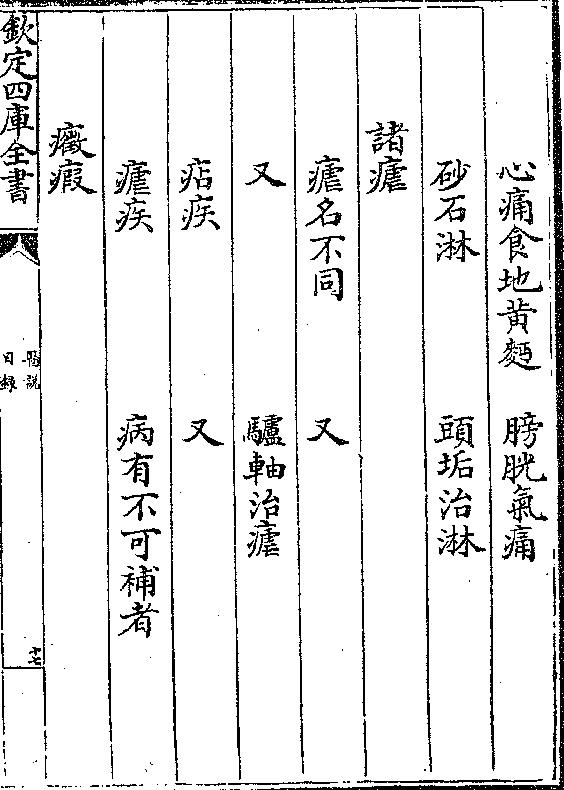 心痛食地黄麪　膀胱氣痛
砂石淋　頭垢治淋
諸瘧
瘧名不同　又
又　驢軸治瘧
痁疾　又
瘧疾　病有不可補者
癥瘕
欽定四庫全書
醫說
目錄
十七